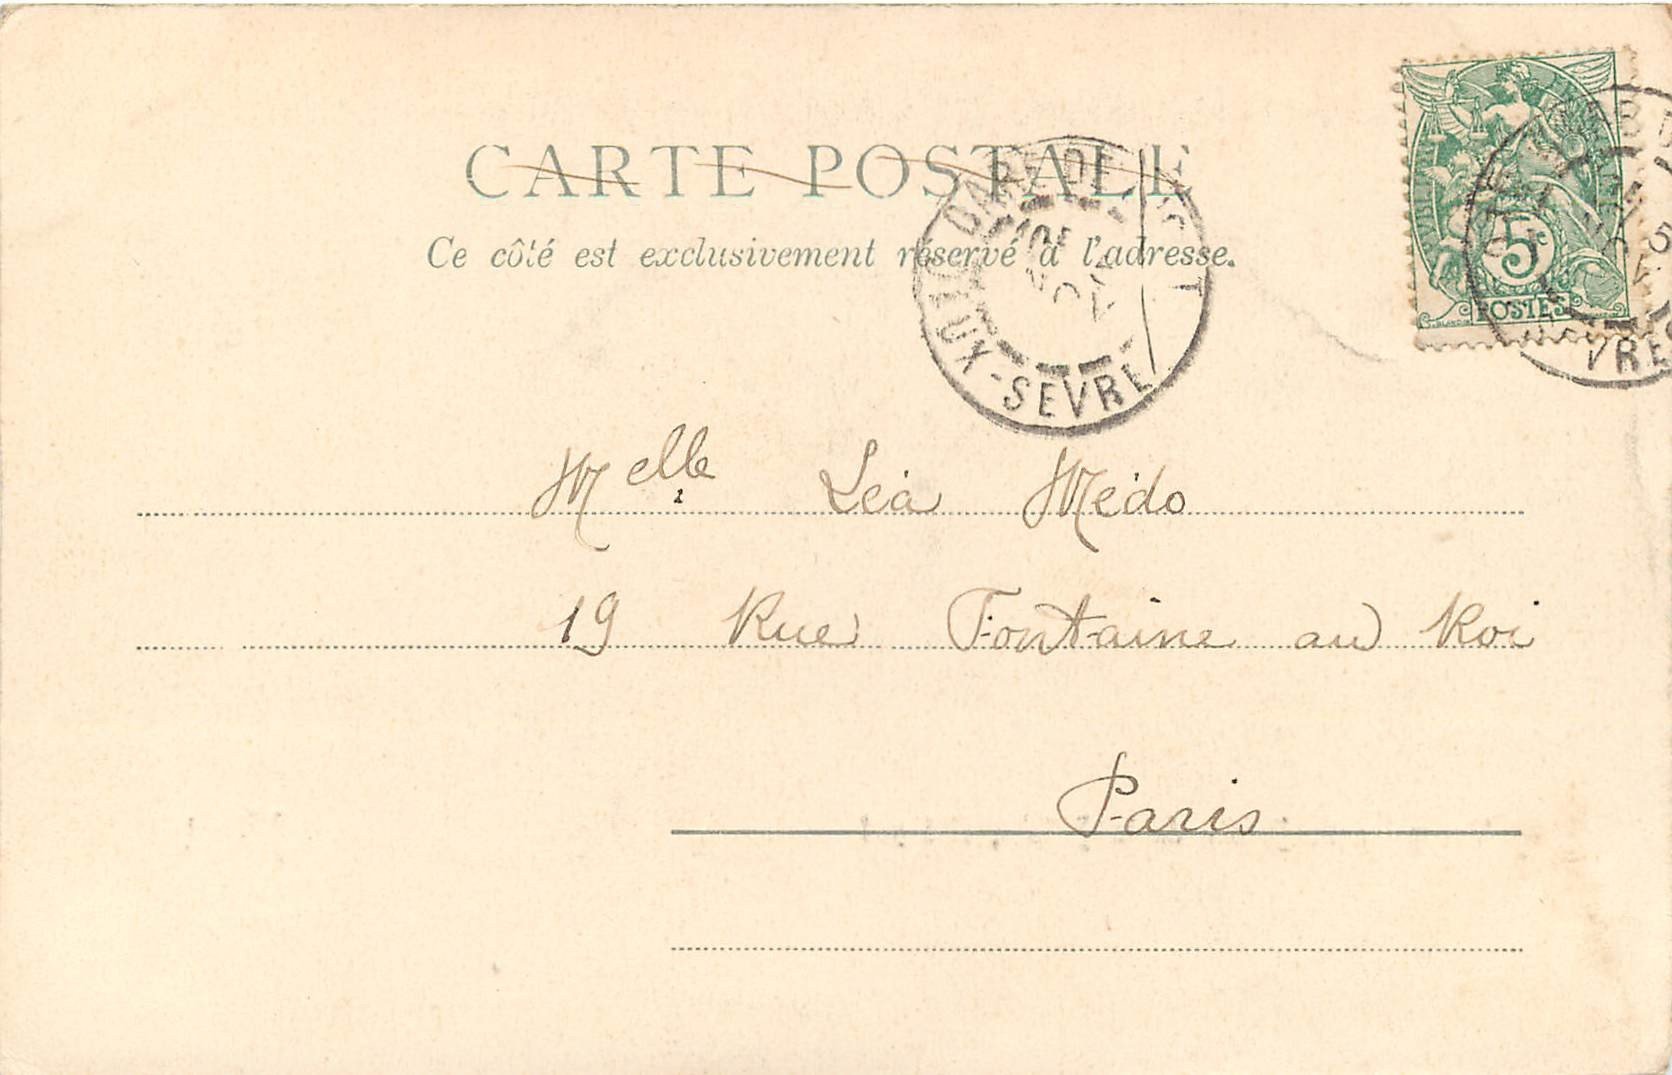 CARTE POSTALE
Ce côté est exclusivement réservé à l'adresse.
GARE DE
DEUX-SEVRES
5c
POSTES
Melle Léa Médo
19 Rue Fontaine au Roi
Paris